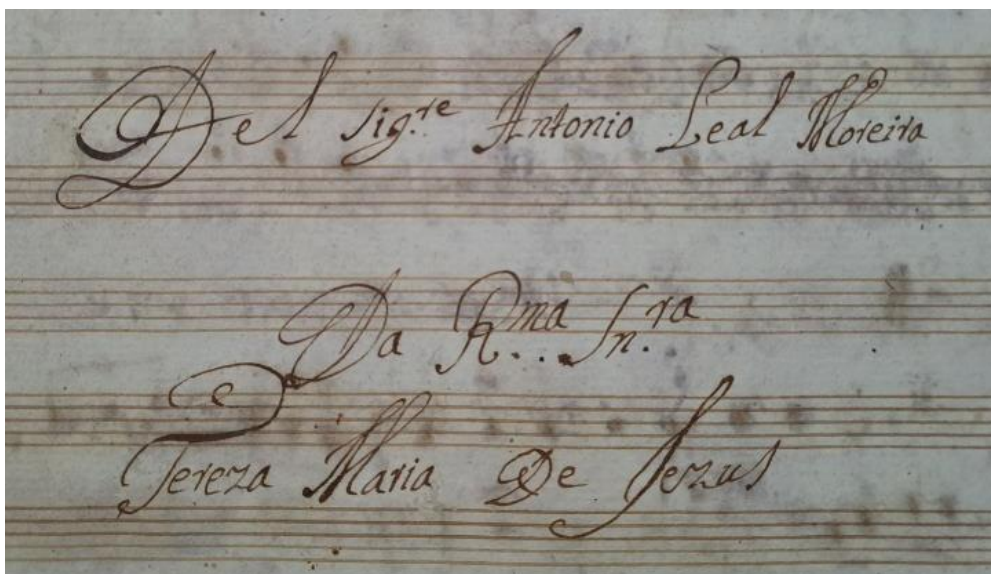 Del Sig.re Antonio Leal Moreira
Da R.ma Sn.ra
Tereza Maria De Jezus